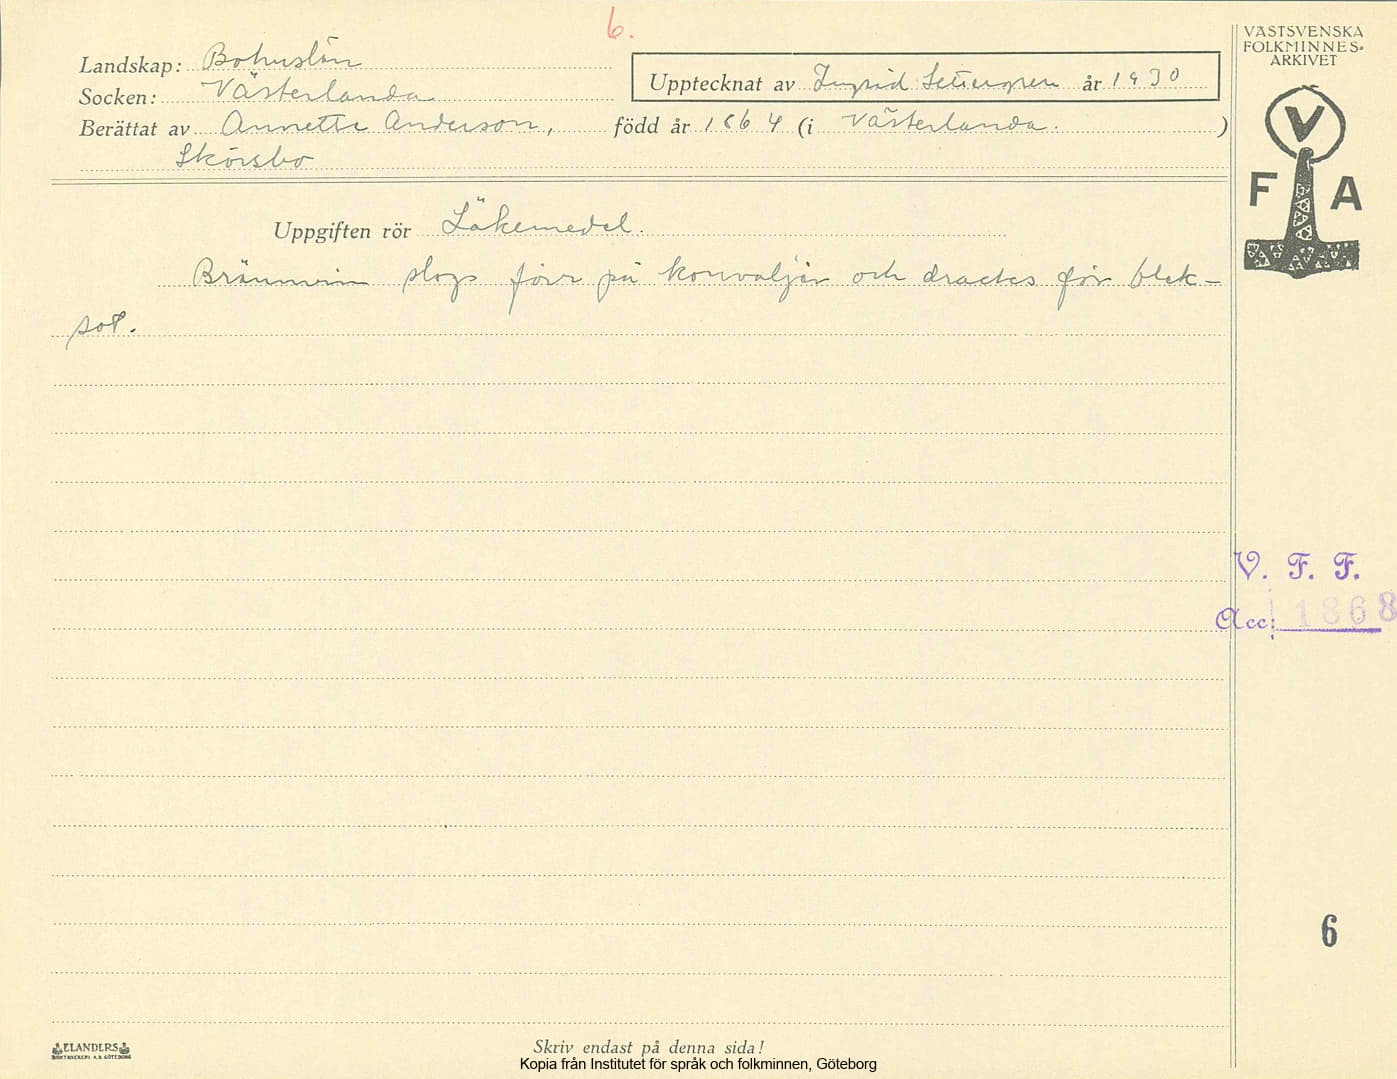 6.
VÄSTSVENSKA
FOLKMINNES-
ARKIVET
Landskap: Bohuslän
Upptecknat av Ingrid Settergren år 1930
Socken: Västerlanda
Berättat av Annette Anderson, född år 1864 (i Västerlanda. )
Skörsbo
V
F A
Uppgiften rör Läkemedel.
Brännvin slogs förr på konvaljer och dracks för blek-
sot.
V. F. F.
Acc: 1868
6
ELANDERS
BOKTRYCKERI A.B. GÖTEBORG
Skriv endast på denna sida!
Kopia från Institutet för språk och folkminnen, Göteborg